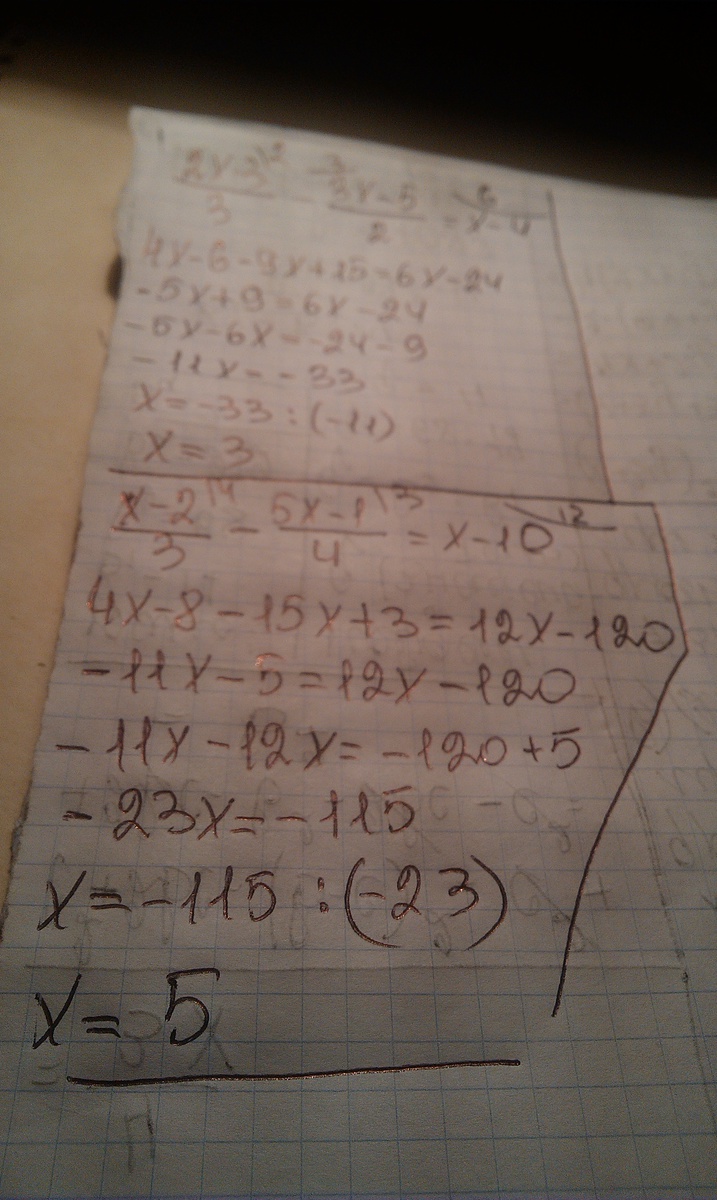 (2x-3)\2/3 - 3/(3x-5)/2 = x-4 \6
4x-6-9x+15=6x-24
-5x+9=6x-24
-5x-6x=-24-9
-11x=-33
x=-33:(-11)
x=3
(x-2)\4/3 - (5x-1)\3/4 = x-10 \12
4x-8-15x+3=12x-120
-11x-5=12x-120
-11x-12x=-120+5
-23x=-115
x=-115:(-23)
x=5